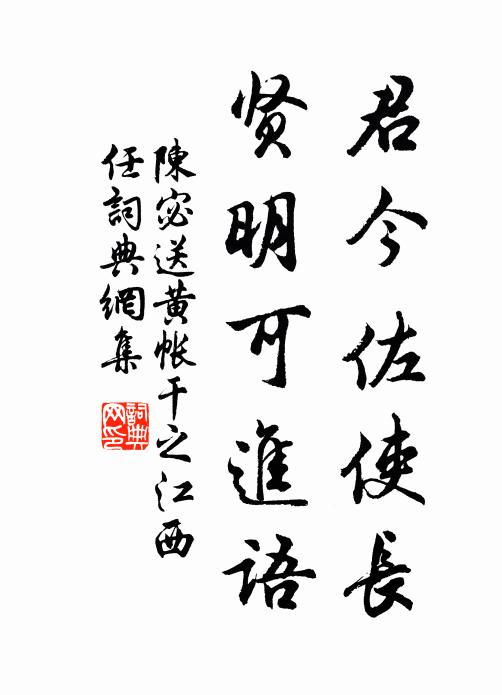 君今佐使長
贤明可進語
陳宓送黄帐干之江西
任詞典網集
詞典
网印